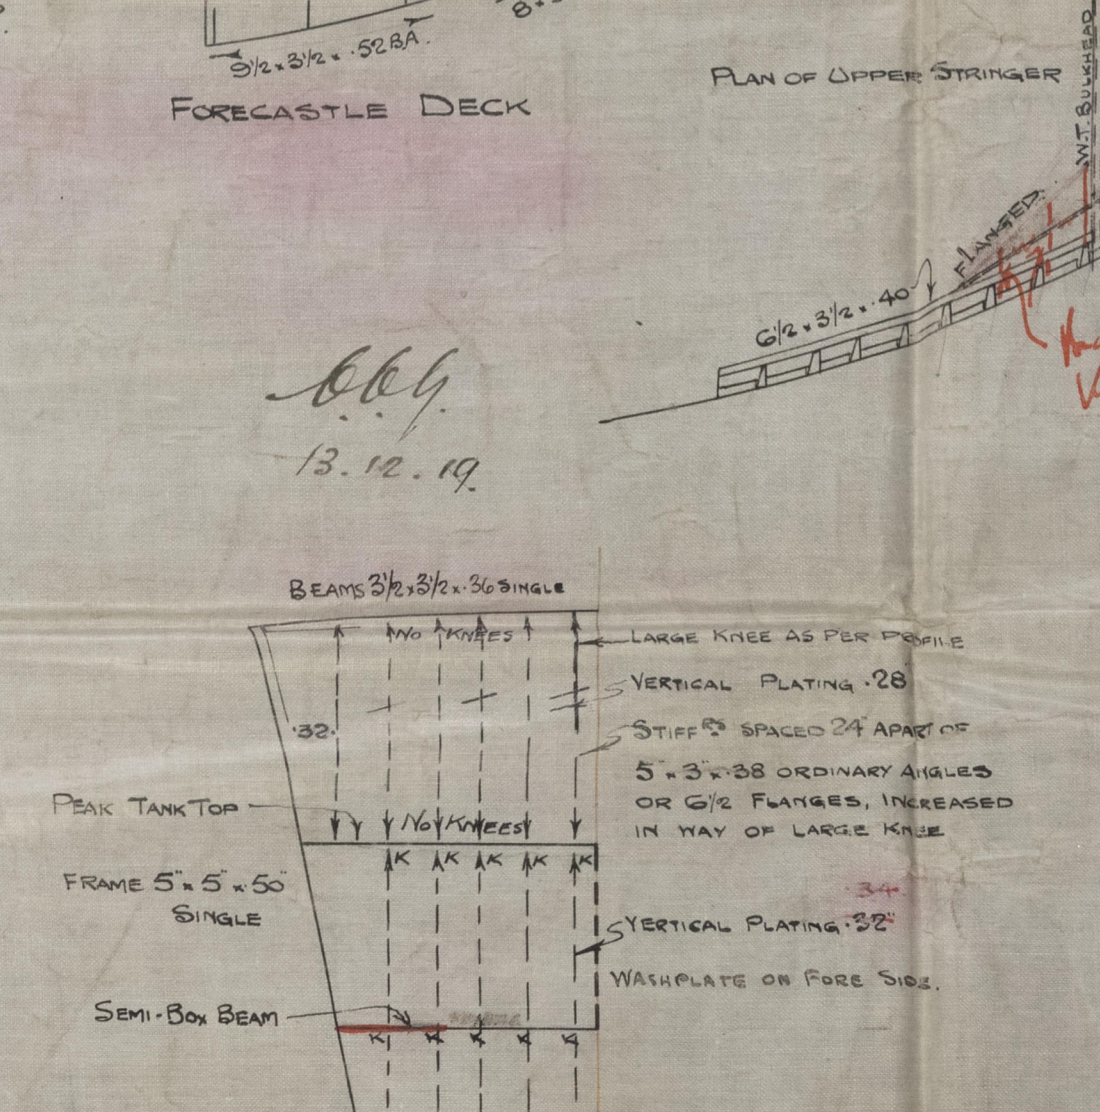 9½ x 3½ x .52 BA.
8
FORECASTLE DECK
PLAN OF UPPER STRINGER
W.T. BULKHEAD
FLANGED.
6½ x 3½ x .40
13.12.19.
BEAMS 3½ x 3½ x .36 SINGLE
NO KNEES
LARGE KNEE AS PER PROFILE
VERTICAL PLATING .28
.32.
STIFFRS SPACED 24" APART OF
5" x 3" x .38 ORDINARY ANGLES
OR 6½ FLANGES, INCREASED
IN WAY OF LARGE KNEE
PEAK TANK TOP
NO KNEES
K K K K K
FRAME 5" x 5" x .50"
SINGLE
.34
VERTICAL PLATING .32"
WASHPLATE ON FORE SIDE.
SEMI-BOX BEAM
K K K K K